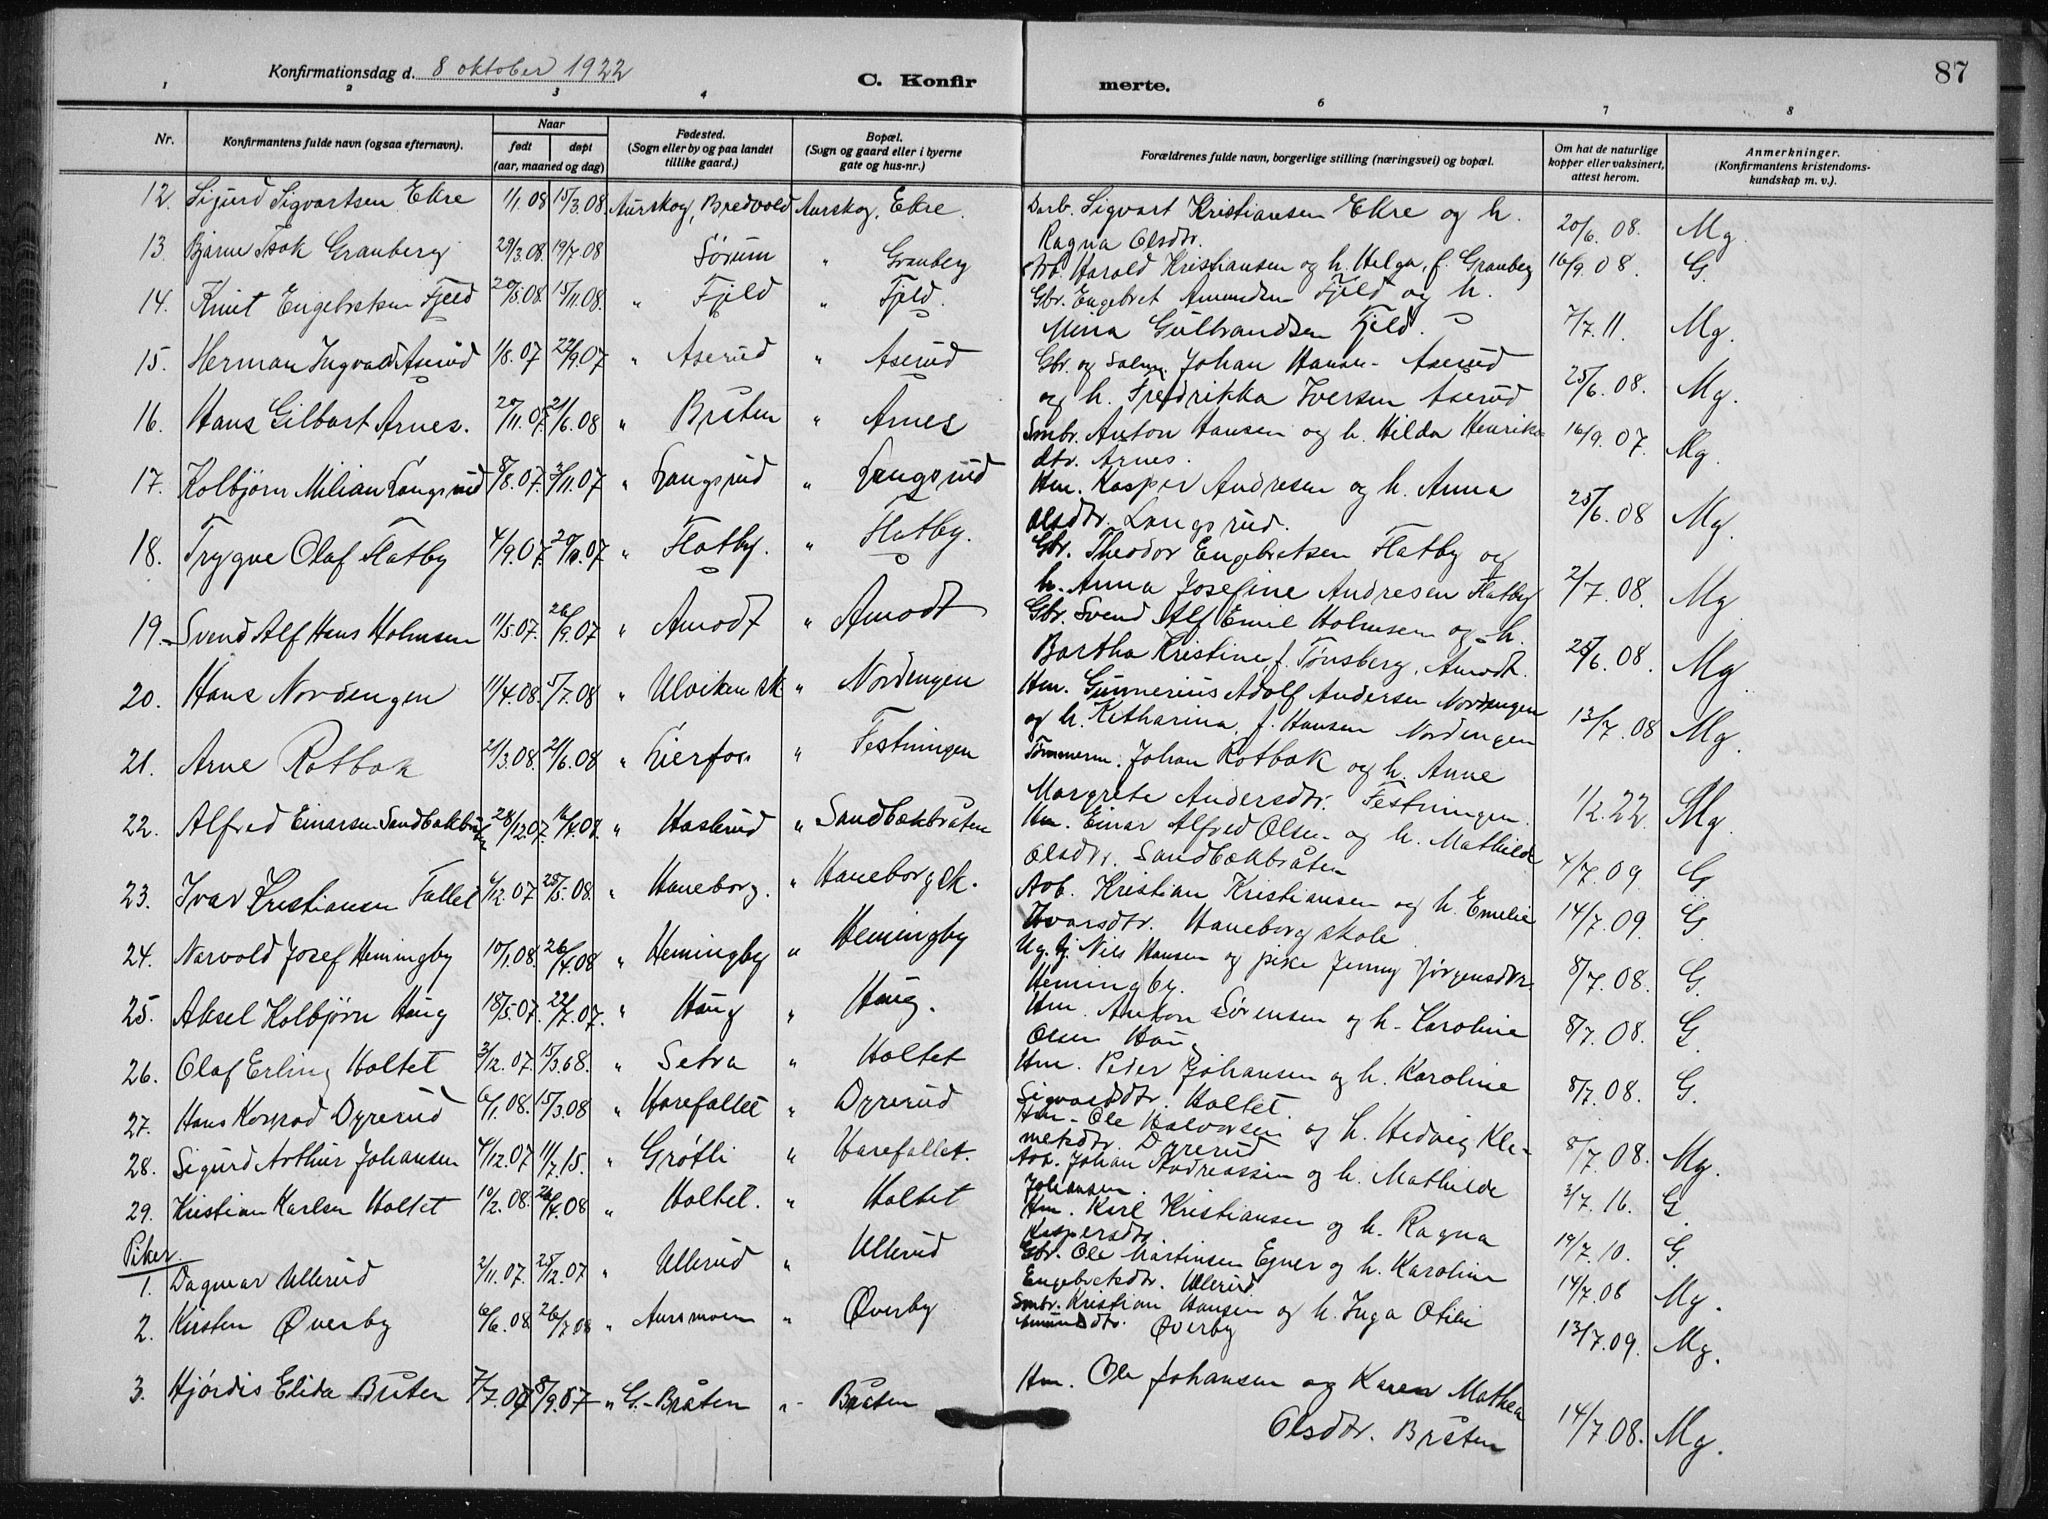 87
Konfirmationsdag d. 8 oktober 1922
C. Konfir merte.
1 2 3 4 5 6 7 8
Nr. Konfirmantens fulde navn (ogsaa efternavn). Naar født døpt (aar, maaned og dag) Fødested. (Sogn eller by og paa landet tillike gaard.) Bopæl. (Sogn og gaard eller i byerne gate og hus-nr.) Forældrenes fulde navn, borgerlige stilling (næringsvei) og bopæl. Om hat de naturlige kopper eller vaksinert, attest herom. Anmerkninger. (Konfirmantens kristendoms-kundskap m. v.).
12. Sigurd Sigvartsen Ekre 1/1.08 15/3.08 Aurskog, Bredvold Aurskog, Ekre. Sigvart Kristiansen Ekre og h. 20/6.08. Mg.
Ragna Olsdtr.
13. Bjarne Isak Granberg 29/3.08. 19/7.08 Sørum " Granberg Arb. Harald Kristiansen og h. Helga, f. Granberg 16/9.08. G.
14. Knut Engebretsen Fjeld 20/5.08. 15/11.08. " Fjeld " Fjeld. Gbr. Engebret Amundsen Fjeld og h.
Mina Gulbrandsen Fjeld. 7/7.11. Mg.
15. Herman Ingvald Aserud 1/8.07 22/9.07 " Aserud " Aserud Gbr. og Salm. Johan Hansen Aserud
og h. Fredrikka Iversen Aserud 25/6.08. Mg.
16. Hans Gilbart Arnes. 20/11.07. 21/6.08 " Bråten " Arnes Smbr. Anton Hansen og h. Hilda Henriks-
dtr. Arnes. 16/9.07. Mg.
17. Kolbjørn Milian Langsrud 8/8.07. 3/11.07 " Langsrud " Langsrud Hm. Kasper Andresen og h. Anna
Olsdtr. Langsrud. 25/6.08 Mg.
18. Trygve Olaf Flatby 4/9.07. 20/10.07 " Flatby. " Flatby. Gbr. Theodor Engebretsen Flatby og
h. Anna Josefine Andresen Flatby 2/7.08. Mg.
19. Svend Alf Hans Holmsen 11/5.07. 26/9.07 " Amodt " Amodt Gbr. Svend Alf Emil Holmsen og h.
Bartha Kristine, f. Tønsberg, Amodt. 25/6.08. Mg.
20. Hans Nordengen 11/4.08. 5/7.08 " Ulviken sk " Nordengen Hm. Gunnerius Adolf Andersen Nordengen
og h. Katharina, f. Hansen Nordengen 13/7.08 Mg.
21. Arne Rotbak 21/3.08. 21/6.08 " Lierfos. " Festningen Tømmerm. Johan Rotbak og h. Anne
Margrete Andersdtr. Festningen. 1/2.22. Mg.
22. Alfred Einarsen Sandbækbråten 28/12.07. " Haslrud " Sandbækbråten Hm. Einar Alfred Olsen og h. Mathilde
Olsdtr. Sandbækbråten 4/7.09 G
23. Ivar Kristiansen Fallet 6/12.07 25/5.08. " Haneborg. " Haneborg sk. Arb. Kristian Kristiansen og h. Emelie
Ivarsdtr. Haneborg skole 14/7.09. G.
24. Narvold Josef Hemingby 10/1.08. 26/4.08 " Hemingby " Hemingby Ug. gj. Nils Hansen og pike Jenny Jørgensdtr.
Hemingby. 8/7.08. G.
25. Aksel Kolbjørn Haug 18/5.07. 22/7.07. " Haug " Haug. Hm. Anton Sørensen og h. Karoline
Olsen Haug 8/7.08. G.
26. Olaf Erling Holtet 3/12.07. 15/3.08. " Setra " Holtet Hm. Peder Johansen og h. Karoline
Sigvardsdtr. Holtet. 8/7.08. G.
27. Hans Konrad Dyrerud 6/1.08. 15/3.08 " Harefallet " Dyrerud Hm. Ole Halvorsen og h. Hedvig Kle-
metsdtr. Dyrerud 8/7.08. Mg.
28. Sigurd Arthur Johansen 4/12.07 11/7.15. " Grøtli " Harefallet. Arb. Johan Andreassen og h. Mathilde
Johansen. 3/7.16. G.
29. Kristian Karlsen Holtet 10/2.08. 26/4.08 " Holtet. " Holtet Hm. Karl Kristiansen og h. Ragna
Kaspersdtr. 19/7.10. G.
Piker.
1. Dagmar Ullerud 2/11.07. 25/12.07 " Ullerud " Ullerud Gbr. Ole Martinsen Egner og h. Karoline
Engebretsdtr. Ullerud 14/7.08 Mg.
2. Kirsten Øverby 6/6.08 26/7.08 " Aursmoen " Øverby Smbr. Kristian Hansen og h. Inga Otilie
Amundsdtr. Øverby 13/7.09. Mg.
3. Hjørdis Elida Bråten 7/7.07 8/9.07 " G.-Bråten " Bråten Hm. Ole Johansen og Karen Mathea
Olsdtr. Bråten 14/7.08. Mg.